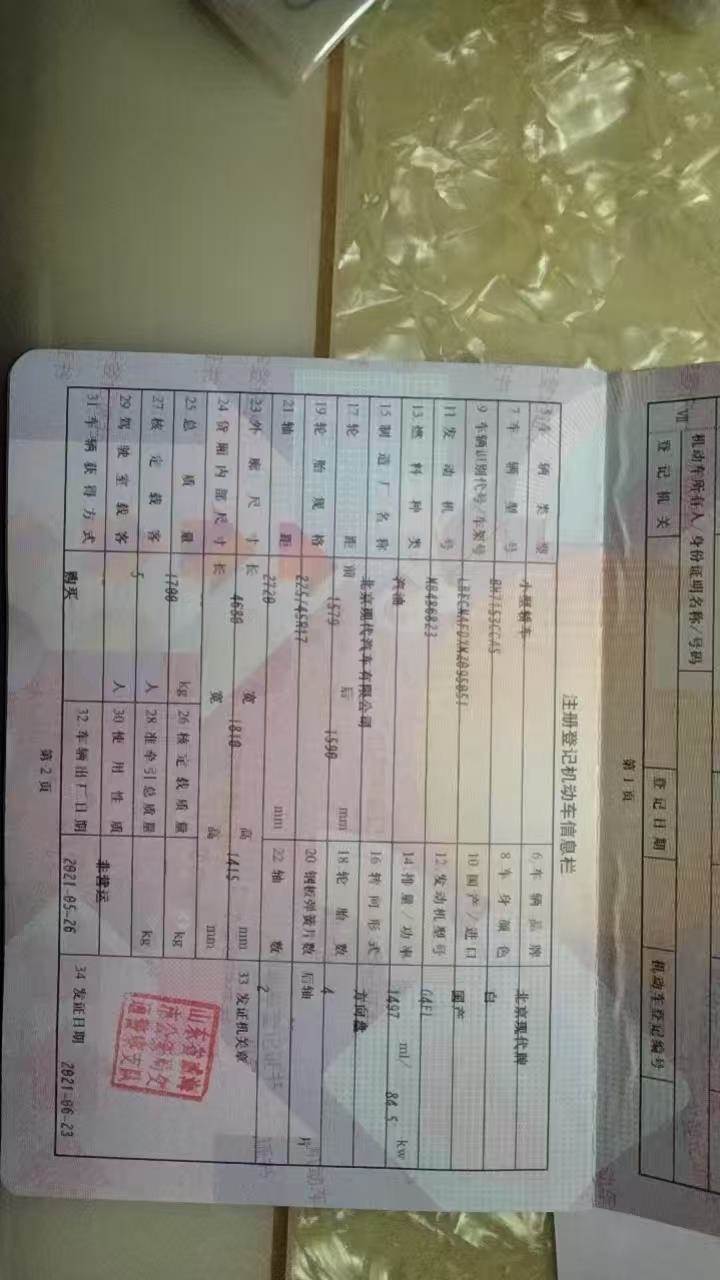 Ⅶ 机动车所有人/身份证明名称/号码
登记机关 登记日期 机动车登记编号
第 1 页
注册登记机动车信息栏
5.车辆类型 小型轿车 6.车辆品牌 北京现代牌
7.车辆型号 BH7153CCAS 8.车身颜色 白
9.车辆识别代号/车架号 10.国产/进口 国产
11.发动机号 MB486823 12.发动机型号 G4FL
13.燃料种类 汽油 14.排量/功率 1497 ml/ 84.5 kw
15.制造厂名称 北京现代汽车有限公司 16.转向形式 方向盘
17.轮距 前 1579 后 1590 mm 18.轮胎数 4
19.轮胎规格 225/45R17 20.钢板弹簧片数 后轴 片
21.轴距 2720 mm 22.轴数 2
23.外廓尺寸 长 4680 宽 1810 高 1415 mm 33.发证机关章
24.货厢内部尺寸 长 宽 高 mm
25.总质量 1700 kg 26.核定载质量 kg
27.核定载客 5 人 28.准牵引总质量 kg
29.驾驶室载客 人 30.使用性质 非营运
31.车辆获得方式 购买 32.车辆出厂日期 2021-05-26 34.发证日期 2021-06-23
第 2 页